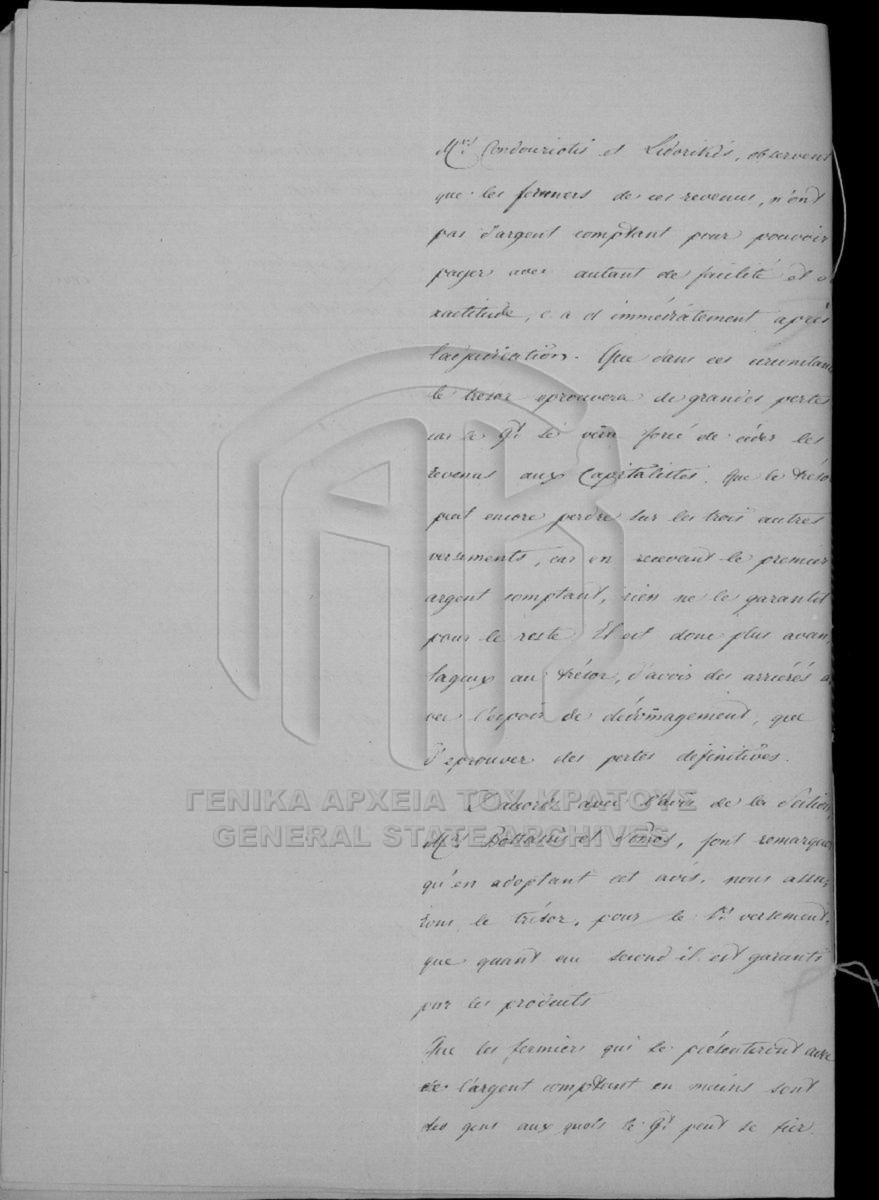 Mrs Condouriotis et Lidorikis, observent
que les fermiers de ces revenus, n'ont
pas d'argent comptant pour pouvoir
payer avec autant de facilité et e
xactitude, c. a d immédiatement après
l'adjudication. Que dans ces circonstan
le tresor eprouvera de grandes pertes
car le Gt se verra forcé de céder les
revenus aux Capitalistes. Que le tréso
peut encore perdre sur les trois autres
versements, car en recevant le premier
argent comptant, rien ne le garantit
pour le reste. Il est donc plus avan
tageux au trésor, d'avoir des arriérés a
vec l'espoir de dédomagement, que
d'eprouver des pertes definitives.
D'accord avec l'avis de la Section,
Mrs Botsaris et , font remarquer
qu'en adoptant cet avis, nous assu
rons le trésor, pour le 1er versement,
que quant au second il est garanti
par les produits
Que les fermiers qui se présenteront avec
de l'argent comptant en mains sont
des gens aux quels le Gt peut se fier.
ΓΕΝΙΚΑ ΑΡΧΕΙΑ ΤΟΥ ΚΡΑΤΟΥΣ
GENERAL STATE ARCHIVES